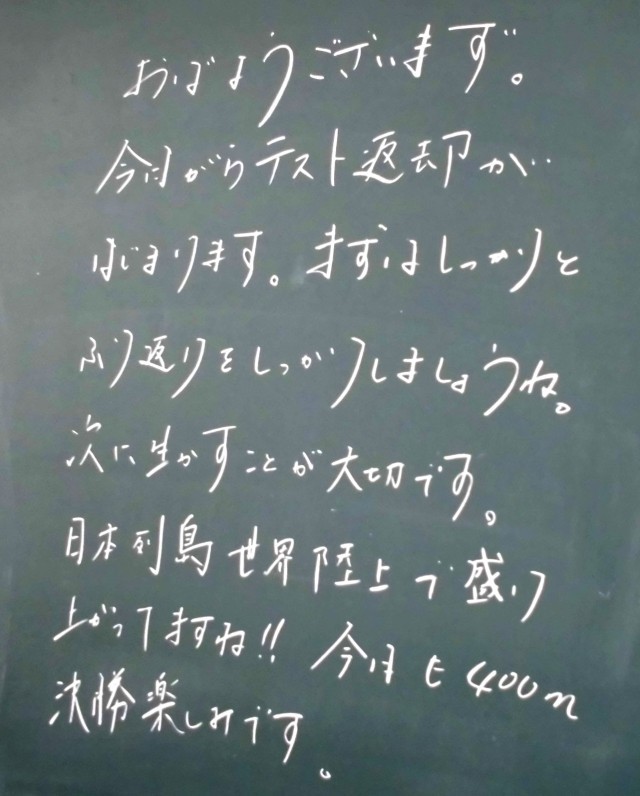 おはようございます。
今日からテスト返却が
はじまります。まずはしっかりと
ふり返りをしっかりしましょうね。
次に生かすことが大切です。
日本列島世界陸上で盛り
上がってますね!!今日も400m
決勝楽しみです。